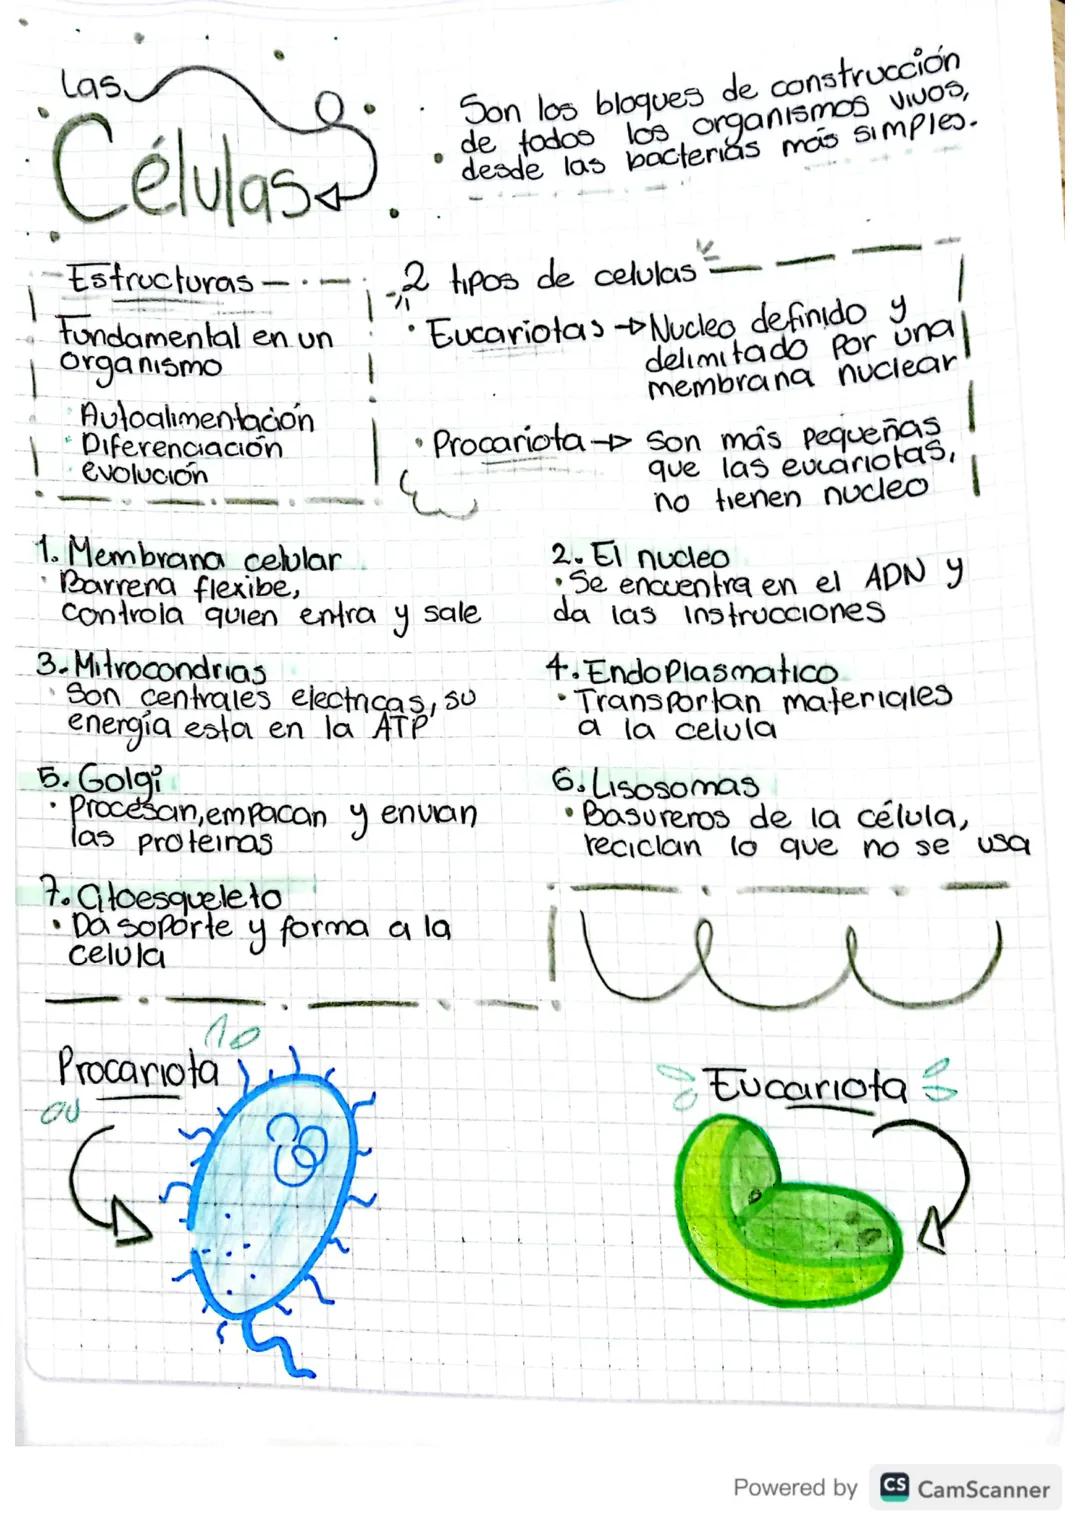 Las
Células
Son los bloques de construcción
de todos los organismos vivos,
desde las bacterias más simples.
Estructuras
Fundamental en un
organismo
· Autoalimentación
· Diferenciación
· evolución
2 tipos de celulas
· Eucariotas → Nucleo definido y
delimitado por una
membrana nuclear
· Procariota → son más pequeñas
que las eucariotas,
no tienen nucleo
1. Membrana celular
· Barrera flexibe,
controla quien entra y sale
2. El nucleo
· Se encuentra en el ADN y
da las instrucciones
3. Mitrocondrias
· Son centrales electricas, su
energía esta en la ATP
4. EndoPlasmatico
· Transportan materiales
a la celula
5. Golgi
· Procesan, empacan y envian
las proteinas
6. Lisosomas
· Basureros de la célula,
reciclan lo que no se usa
7. Citoesqueleto
· Da soporte y forma a la
celula
Procariota
Eucariota
Powered by CS CamScanner